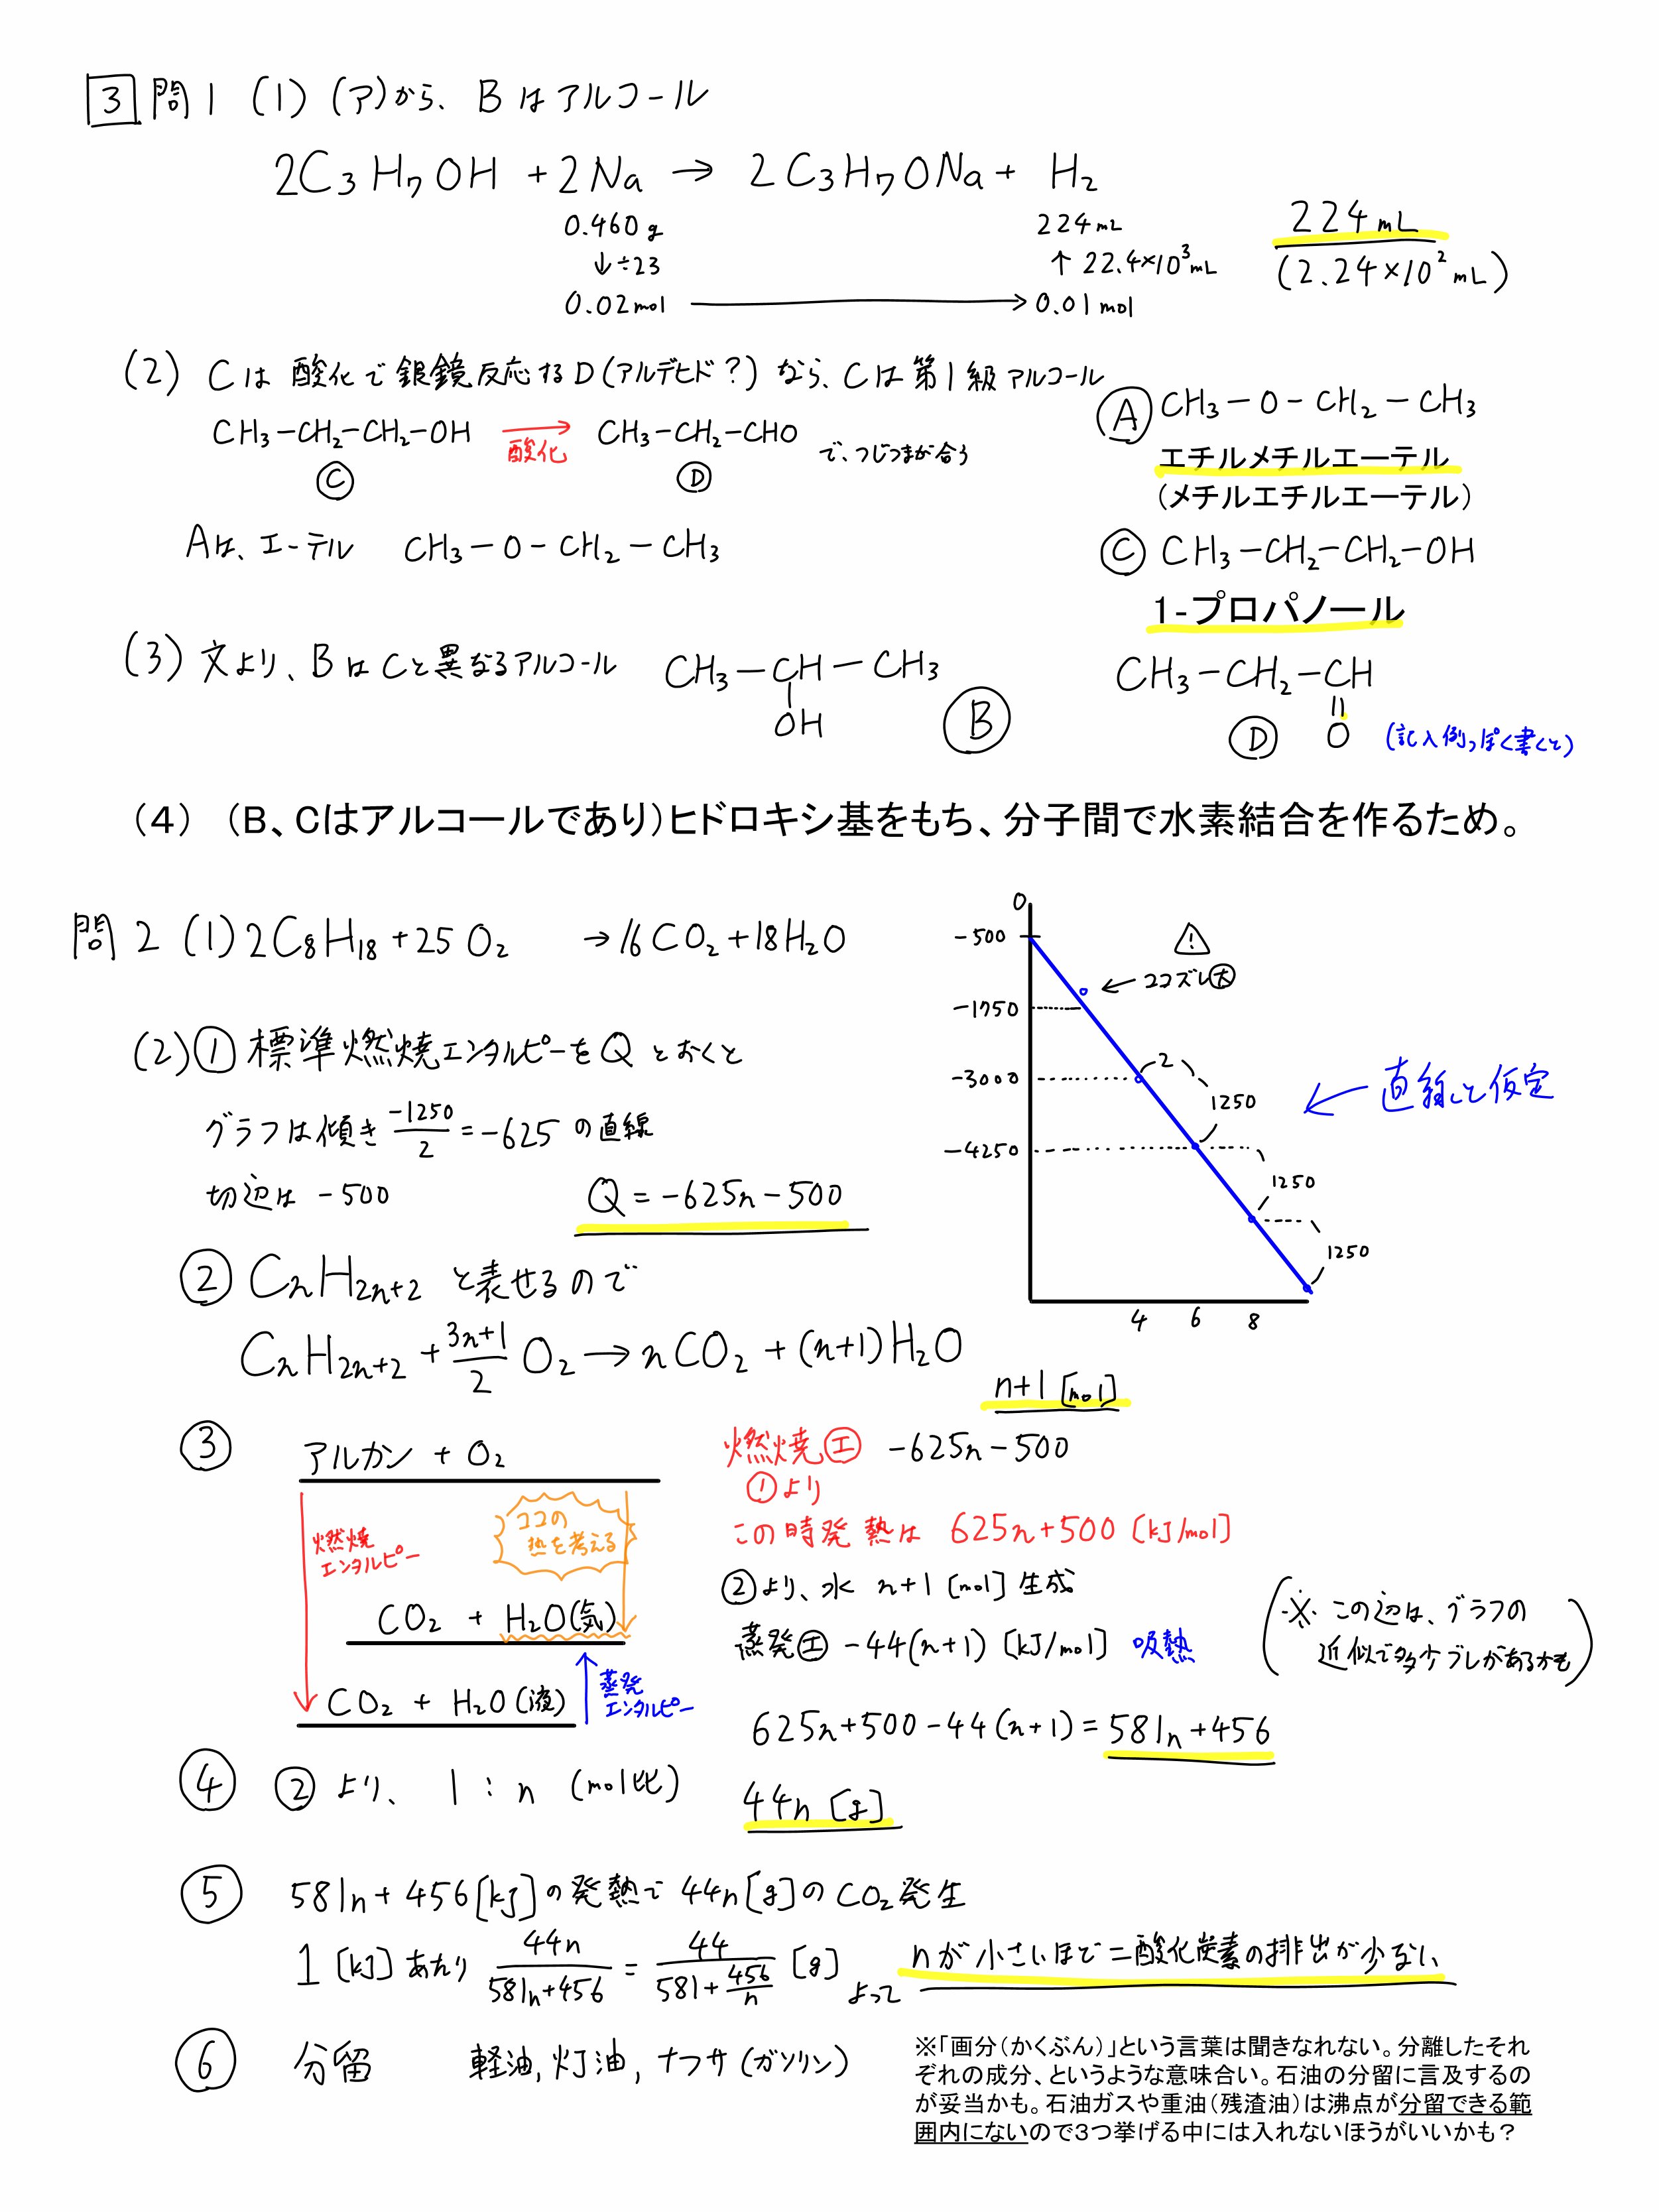 3 問1 (1) (ア)から、Bはアルコール
2C₃H₇OH + 2Na → 2C₃H₇ONa + H₂
0.460g 224mL
↓÷23 ↑22.4×10³mL
0.02mol → 0.01mol
224mL
(2.24×10²mL)
(2) Cは酸化で銀鏡反応するD(アルデヒド?)なら、Cは第1級アルコール
CH₃-CH₂-CH₂-OH 酸化→ CH₃-CH₂-CHO で、つじつまが合う
Ⓒ Ⓓ
Aは、エーテル CH₃-O-CH₂-CH₃
Ⓐ CH₃-O-CH₂-CH₃
エチルメチルエーテル
(メチルエチルエーテル)
Ⓒ CH₃-CH₂-CH₂-OH
1-プロパノール
(3) 文より、BはCと異なるアルコール CH₃-CH-CH₃
OH Ⓑ
CH₃-CH₂-CH
Ⓓ O (記入例っぽく書くと)
(4) (B、Cはアルコールであり)ヒドロキシ基をもち、分子間で水素結合を作るため。
問2 (1) 2C₈H₁₈+25O₂ →16CO₂+18H₂O
(2)① 標準燃焼エンタルピーをQとおくと
グラフは傾き -1250/2 = -625 の直線
切辺は -500 Q = -625n - 500
0
-500
-1750
-3000
-4250
⚠
← ココズレ大
2
1250
1250
1250
4 6 8
← 直線と仮定
② CnH2n+2 と表せるので
CnH2n+2 + (3n+1)/2 O₂ → nCO₂ + (n+1)H₂O
n+1 [mol]
③ アルカン + O₂
燃焼エンタルピー
ココの熱を考える
CO₂ + H₂O(気)
CO₂ + H₂O(液)
蒸発エンタルピー
燃焼㋓ -625n-500
①より
この時発熱は 625n+500 [kJ/mol]
②より、水 n+1 [mol] 生成
蒸発㋓ -44(n+1) [kJ/mol] 吸熱
(※この辺は、グラフの
近似で多少ブレがあるかも)
625n+500-44(n+1) = 581n+456
④ ②より、1:n (mol比) 44n [g]
⑤ 581n+456[kJ]の発熱で 44n[g]のCO₂発生
1[kJ]あたり 44n/(581n+456) = 44/(581+456/n) [g] よって nが小さいほど二酸化炭素の排出が少ない
⑥ 分留 軽油, 灯油, ナフサ(ガソリン)
※「画分(かくぶん)」という言葉は聞きなれない。分離したそれ
ぞれの成分、というような意味合い。石油の分留に言及するの
が妥当かも。石油ガスや重油(残渣油)は沸点が分留できる範
囲内にないので3つ挙げる中には入れないほうがいいかも?